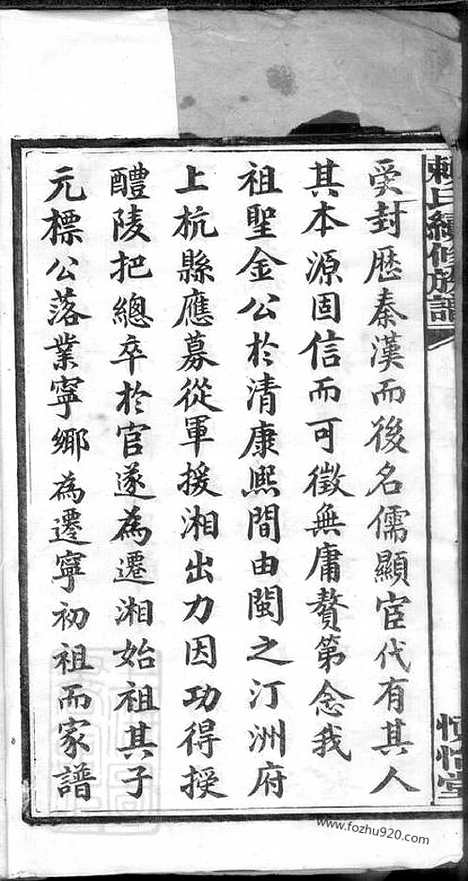 賴氏續修族譜
受封歷秦漢而後名儒顯宦代有其人
其本源固信而可徵無庸贅第念我
祖聖金公於清康熙間由閩之汀洲府
上杭縣應募從軍援湘出力因功得授
醴陵把總卒於官遂為遷湘始祖其子
元標公落業寧鄉為遷寧初祖而家譜
www.fozhu920.com